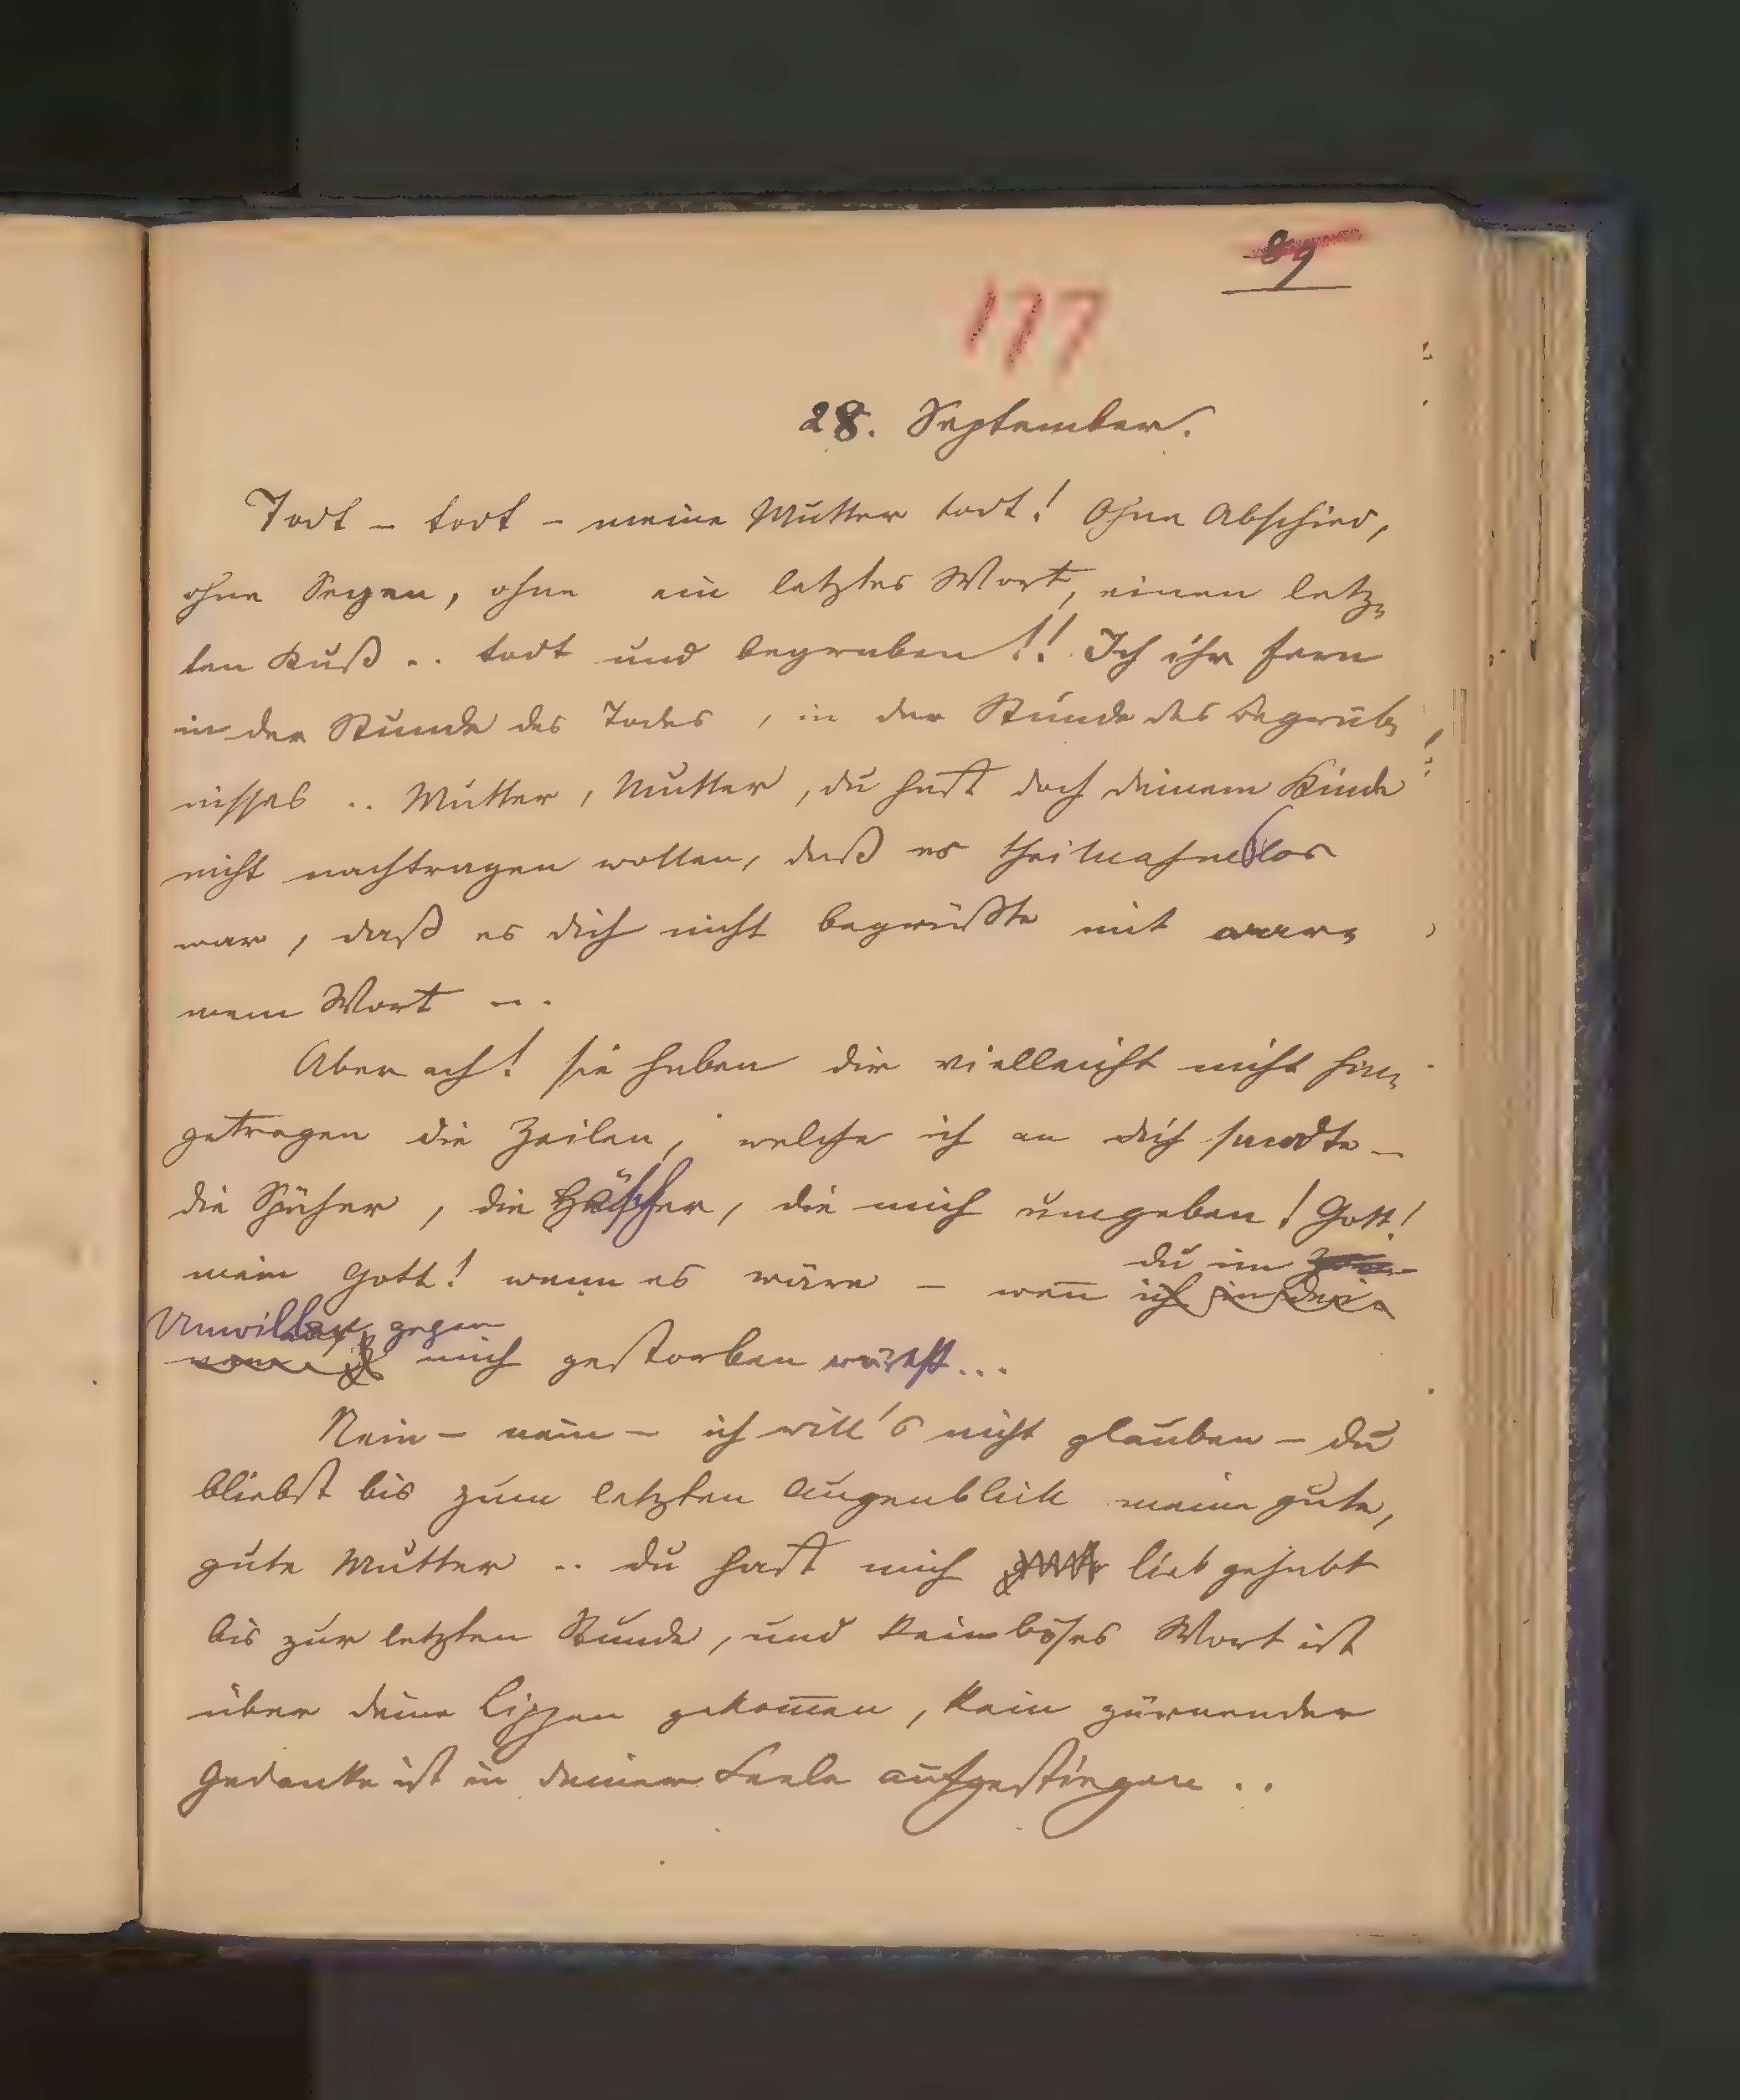 89
117
28. September.
Todt – todt – meine Mutter todt! Ohne Abschied,
ohne Segen, ohne ein letztes Wort, einen letz-
ten Kuß .. todt und begraben!! Ich ihr fern
in der Stunde des Todes, in der Stunde des Begräb-
nisses .. Mutter, Mutter, du hast doch deinem Kinde
nicht nachtragen wollen, daß es theilnahmslos
war, daß es dich nicht begrüßte mit war-
mem Wort ...
Aber ach! sie haben dir vielleicht nicht hin-
getragen die Zeilen, welche ich an dich sandte –
die Späher, die Häscher, die mich umgeben! Gott!
du im
mein Gott! wenn es wäre – wen̄ ich in dei-
Unwillen gegen
mich gestorben wärest...
Nein – nein – ich will's nicht glauben – du
bliebst bis zum letzten Augenblick meine gute,
gute Mutter .. du hast mich lieb gehabt
bis zur letzten Stunde, und kein böses Wort ist
über deine Lippen gekom̄en, kein zürnender
Gedanke ist in deiner Seele aufgestiegen ..